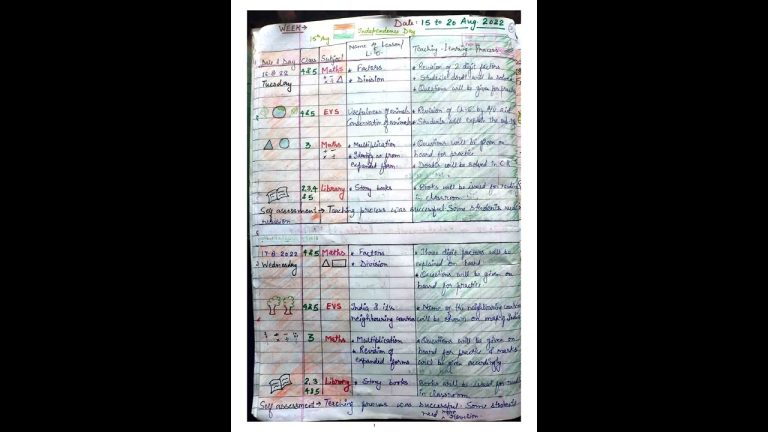 WEEK→ Date: 15 to 20 Aug. 2022
15th Aug Independence Day
Date & Day Class Subject Name of Lesson/ L.O. Teaching-Learning-Process
16·8·22 4&5 Maths • Factors • Revision of 2 digit factors
Tuesday • Division • Students' doubt will be solved
• Questions will be given for practice
4&5 EVS Usefulness of animals • Revision of Ch-5 by A/V aid
Conservation of animals • Students will explain the
3 Maths • Multiplication • Questions will be given on
• Identify no from board for practice
expanded form • Doubts will be solved in C.R
2,3,4 Library • Story books • Books will be issued for reading
&5 in classroom
Self assessment → Teaching process was successful. Some students need
revision
17·8·2022 4&5 Maths • Factors • Three digit factors will be
Wednesday • Division explained on board
• Questions will be given on
board for practice
4&5 EVS India & its • Name of the neighbouring
neighbouring will be shown on map of India
3 Maths • Multiplication • Questions will be given on
• Revision of board for practice & marks
expanded forms will be given accordingly
2,3 Library • Story books Books will be issued for
4&5 in classroom
Self assessment → Teaching process was successful. Some students
need more revision